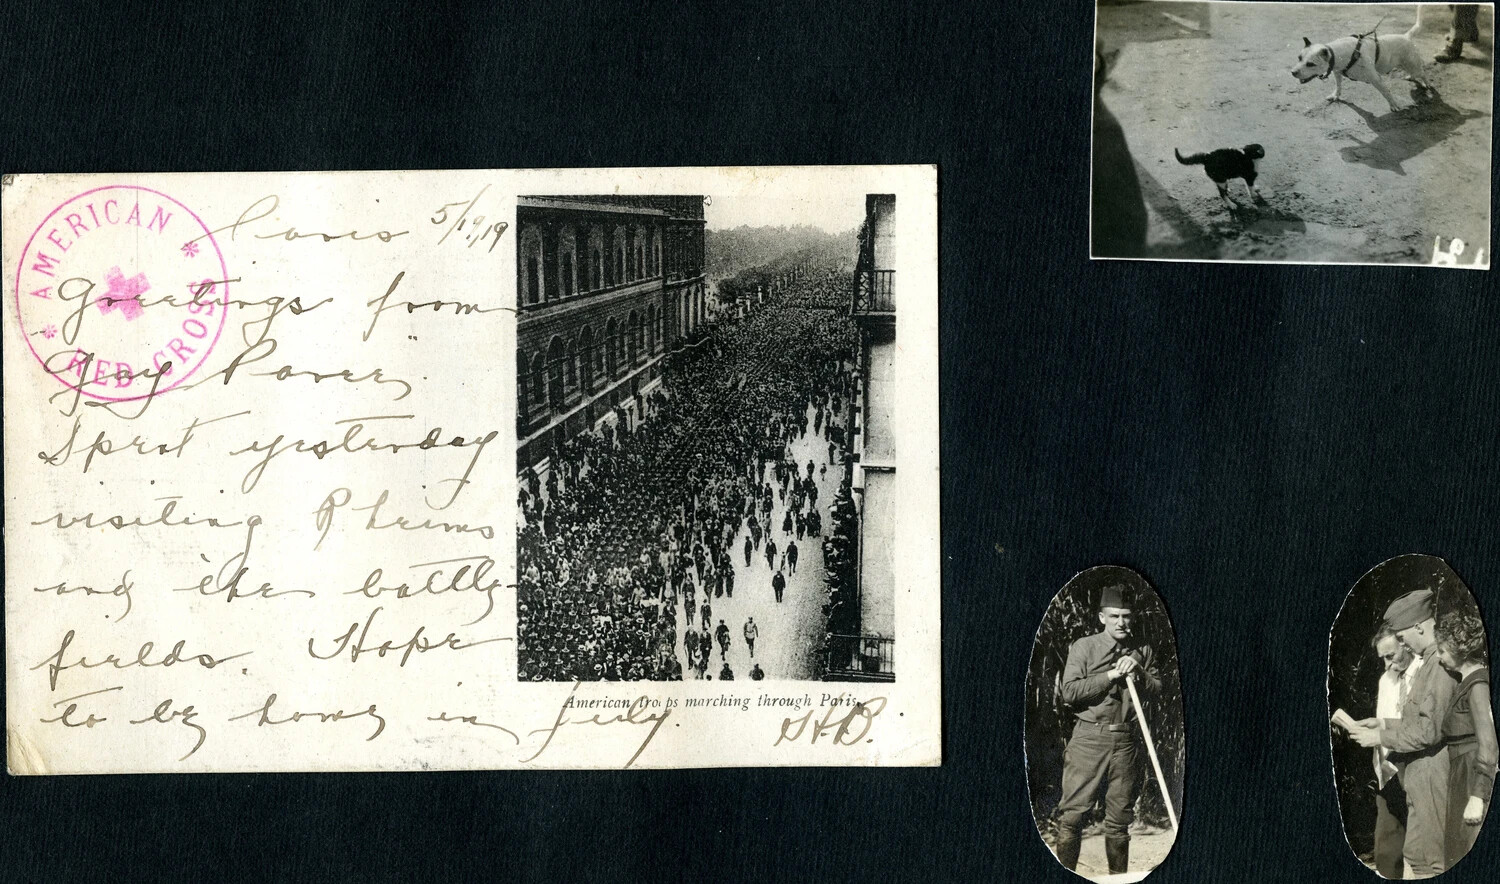 AMERICAN
RED CROSS
Paris 5/19,19
Greetings from
Gay Paree.
Spent yesterday
visiting Rheims
and the battle
fields. Hope
to be home in July.
H.B.
American troops marching through Paris.